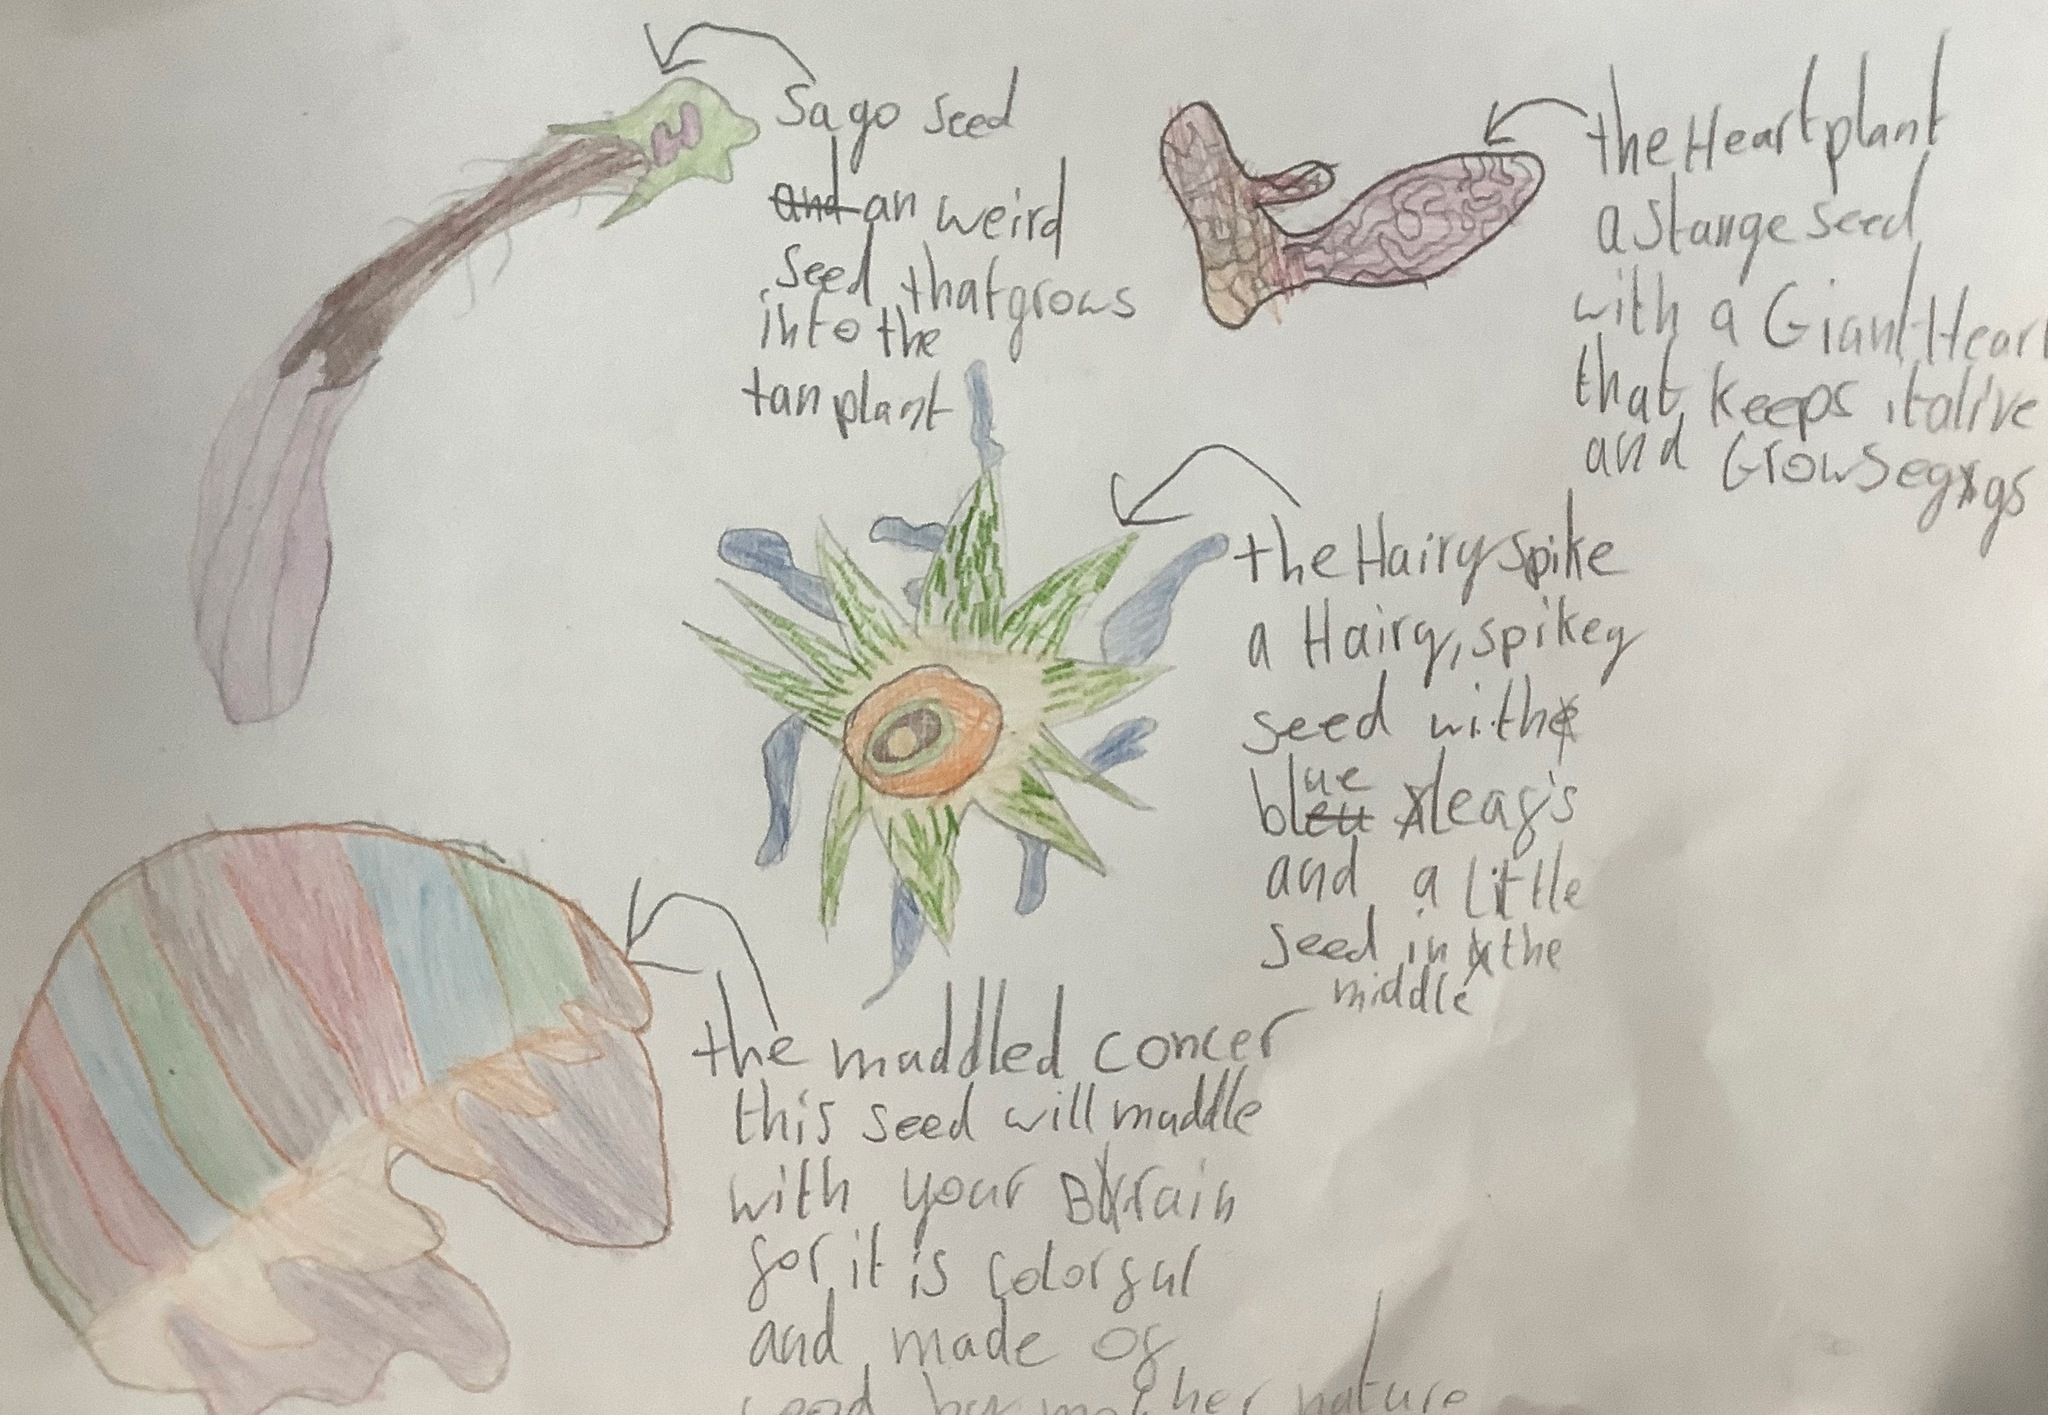 Sago seed
and an weird
seed that grows
into the
tan plant
the Heart plant
a stange seed
with a Giant Heart
that keeps it alive
and Grows eggs
the Hairy spike
a Hairy, spikey
seed with
blue leafs
and a little
seed in the
middle
the muddled concer
this seed will muddle
with your Brain
for it is colorful
and made of
by mother nature